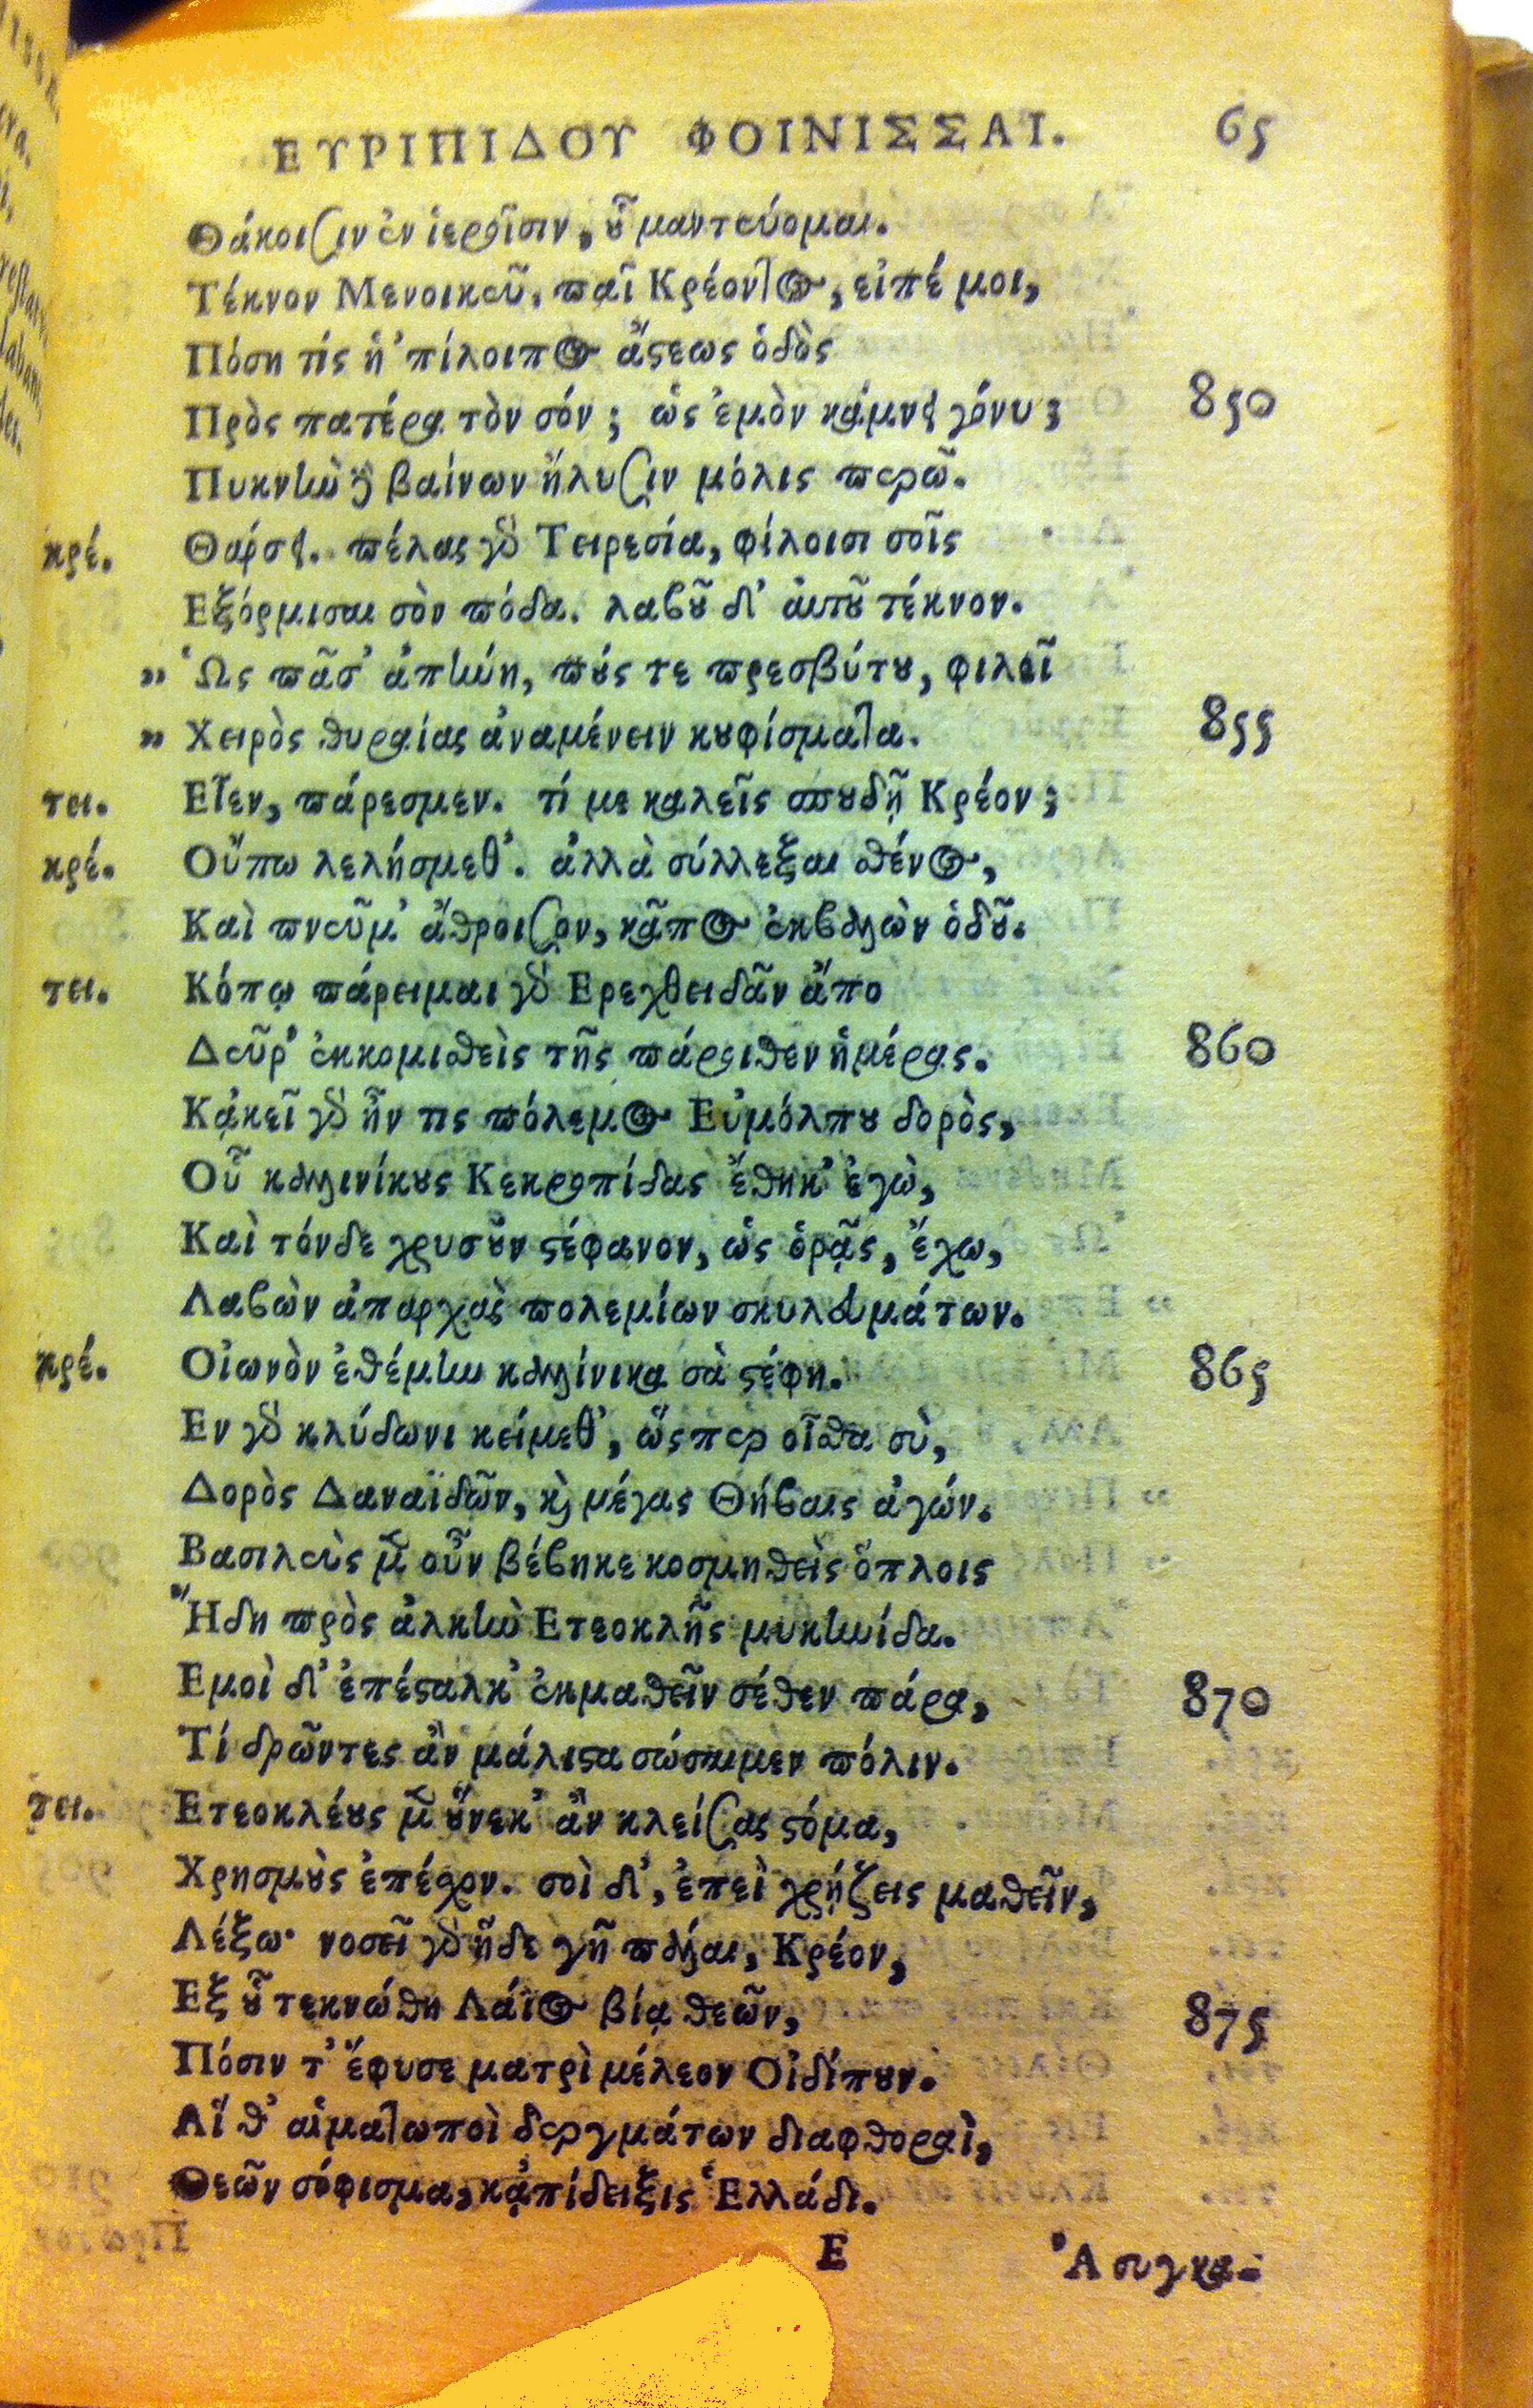 ΕΥΡΙΠΙΔΟΥ ΦΟΙΝΙΣΣΑΙ. 65
Θάκοισιν ἐν ἱεροῖσιν, οὗ μαντεύομαι.
Τέκνον Μενοικεῦ, παῖ Κρέοντος, εἰπέ μοι,
Πόση τίς ἡ ’πίλοιπος ἄστεως ὁδὸς
Πρὸς πατέρα τὸν σόν; ὡς ἐμὸν κάμνει γόνυ; 850
Πυκνὴν δὲ βαίνων ἤλυσιν μόλις περῶ.
κρέ. Θάρσει. πέλας γὰρ Τειρεσία, φίλοισι σοῖς
Εξόρμισαι σὸν πόδα. λαβοῦ δ’ αὐτοῦ τέκνον.
„ Ὡς πᾶσ’ ἀπήνη, πούς τε πρεσβύτου, φιλεῖ
„ Χειρὸς θυραίας ἀναμένειν κουφίσματα. 855
τει. Εἶεν, πάρεσμεν. τί με καλεῖς σπουδῇ Κρέον;
κρέ. Οὔπω λελήσμεθ’. ἀλλὰ σύλλεξαι σθένος,
Καὶ πνεῦμ’ ἄθροισον, κᾶπος ἐκβαλὼν ὁδοῦ.
τει. Κόπῳ πάρειμαι γὰρ Ερεχθειδᾶν ἄπο
Δεῦρ’ ἐκκομισθεὶς τῆς πάροιθεν ἡμέρας. 860
Κᾀκεῖ γὰρ ἦν τις πόλεμος Εὐμόλπου δορὸς,
Οὗ καλλινίκους Κεκροπίδας ἔθηκ’ ἐγὼ,
Καὶ τόνδε χρυσοῦν στέφανον, ὡς ὁρᾷς, ἔχω,
Λαβὼν ἀπαρχὰς πολεμίων σκυλευμάτων.
κρέ. Οἰωνὸν ἐθέμην καλλίνικα σὰ στέφη. 865
Εν γὰρ κλύδωνι κείμεθ’, ὥςπερ οἶσθα σὺ,
Δορὸς Δαναϊδῶν, καὶ μέγας Θήβαις ἀγών.
Βασιλεὺς μὲν οὖν βέβηκε κοσμηθεὶς ὅπλοις
Ἤδη πρὸς ἀλκὴν Ετεοκλῆς μυκηνίδα.
Εμοὶ δ’ ἐπέσταλκ’ ἐκμαθεῖν σέθεν πάρα, 870
Τί δρῶντες ἂν μάλιστα σώσαιμεν πόλιν.
τει. Ετεοκλέους μὲν οὕνεκ’ ἂν κλείσας στόμα,
Χρησμοὺς ἐπέσχον. σοὶ δ’, ἐπεὶ χρῄζεις μαθεῖν,
Λέξω· νοσεῖ γὰρ ἥδε γῆ πάλαι, Κρέον,
Εξ οὗ τεκνώθη Λάϊος βίᾳ θεῶν, 875
Πόσιν τ’ ἔφυσε ματρὶ μέλεον Οἰδίπουν.
Αἵ θ’ αἱματωποὶ δεργμάτων διαφθοραὶ,
Θεῶν σόφισμα, κᾀπίδειξις Ἑλλάδι.
Ε Ἁ συγκα-